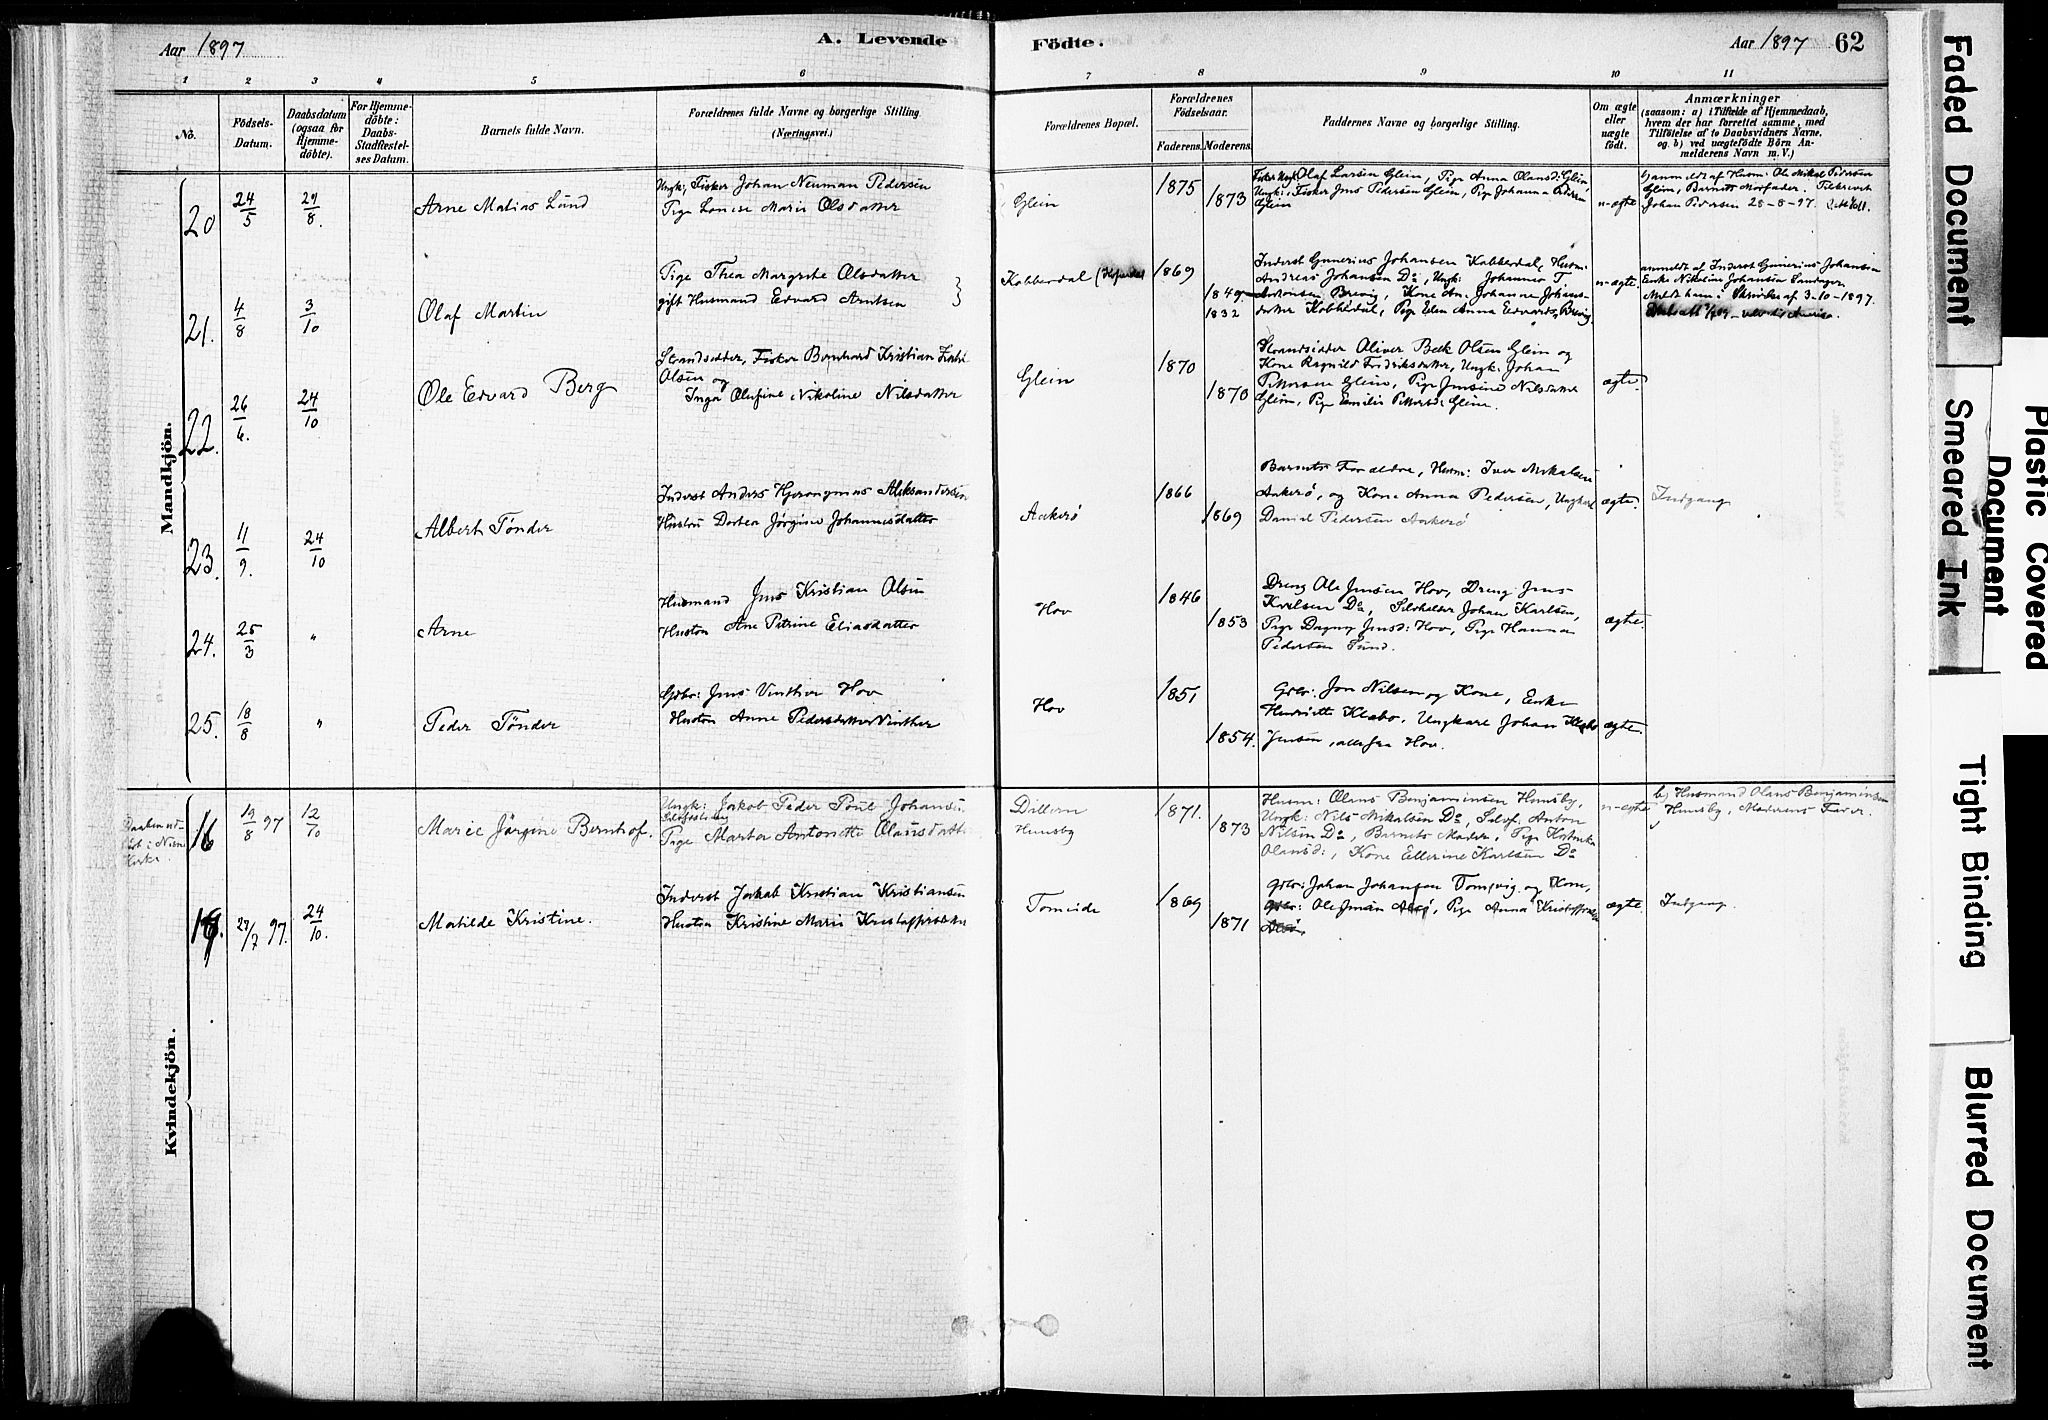 Aar 1897
A. Levende
Födte.
Aar 1897
62
1 2 3 4 5 6 7 8 9 10 11
No.
Födsels-
Datum.
Daabsdatum
(ogsaa for
Hjemme-
döbte).
For Hjemme-
döbte:
Daabs-
Stadfæstel-
ses Datum.
Barnets fulde Navn.
Forældrenes fulde Navne og borgerlige Stilling
(Næringsvei.)
Forældrenes Bopæl.
Forældrenes
Födselsaar.
Faderens. Moderens.
Faddernes Navne og borgerlige Stilling.
Om ægte
eller
uægte
født.
Anmærkninger
(saasom: a) i Tilfælde af Hjemmedaab,
hvem der har forrettet samme, med
Tilföielse af to Daabsvidners Navne.
og b) ved uægtefödte Börn An-
melderens Navn m. V.)
Mandkjön.
20 24/5 29/8
Arne Matias Lund
Ungk: Fisker Johan Neuman Pedersen
Pige Lovise Marie Olsdatter
Glein
1875
1873
Olaf Larsen Glein, Pige Anna Olausd: Glein,
Ungk: Fisker Jens Pedersen Glein, Pige Johanna
Glein
u-ægte
Glein, Barnets Morfader.
Johan Pedersen 28-8-97.
21. 4/8 3/10
Olaf Martin
Pige Thea Margrete Olsdatter
gift Husmand Edvard Arntsen
Kobberdal
1869
1849
1832
Inderst Gunerius Johansen Kobberdal, Husm:
Andreas Johansen Do, Ungk: Johannes T
Antonsen Brevig, Kone An. Johanne Johans-
datter Kobberdal, Pige Elen Anna Edvards. Brevig
u-ægte.
anmeldt af Inderst Gunerius Johansen
Enke Nikoline Johansen
af 3-10-1897.
22. 26/6. 24/10
Ole Edvard Berg
Strandsidder, Fisker Bernhard Kristian
Olsen og
Inga Olufine Nikoline Nilsdatter
Glein
1870
1870
Strandsidder Oliver Bek Olsen Glein og
Kone Ragnild Fredriksdatter, Ungk. Johan
Pettersen Glein, Pige Jensine Nilsdatter
Glein, Pige Emilie Petters: Glein.
ægte.
23. 11/9. 24/10
Albert Tönder
Inderst Anders Hjeronymus Aleksandersen
Hustru Dortea Jørgine Johannesdatter
Aakerö
1866
1869
Barnets Forældre, Husm: Iver Mikalsen
Aakerö, og Kone Anna Pedersen, Ungkarl
Daniel Pedersen Aakerö
ægte.
Indgang
24. 25/3 "
Arne
Husmand Jens Kristian Olsen
Hustru Ane Petrine Eliasdatter
Hov
1846
1853
Dreng Ole Jensen Hov, Dreng Jens
Karlsen Do, Selvholder Johan Karlsen,
Pige Dagny Jensd: Hov, Pige Hanna
Pedersen Sund.
ægte.
25. 18/8 "
Peder Tönder
Gbr: Jens Vinther Hov
Hustru Anne Pedersdatter Vinther
Hov
1851
1854.
Gbr: Jon Nilsen og Kone, Enke
Henriette Klæbo, Ungkarl Johan
Jensen, alle fra Hov.
ægte.
Kvindekjön.
16 19/8 97 12/10
Marie Jörgine Bernhof.
Ungk: Jakob Peder Povl Johansen
Pige Marta Antonette Olausdatter
Dillern
Husby
1871.
1873
Husm: Olaus Benjaminsen Husby,
Ungk: Nils Mikalsen Do, Selvf. Anton
Nilsen Do, Barnets Moder, Pige
Olausd:, Kone Ellerine Karlsen Do
u-ægte
b) Husmand Olaus Benjaminsen
Husby, Moderens Fader.
17. 27/7 97. 24/10.
Matilde Kristine.
Inderst Jakob Kristian Kristiansen
Hustru Kristine Marie
Tomeide
1869
1871
Gbr: Johan Johansen Tomsvig og Kone,
Gbr: Ole Jensen, Pige Anna
ægte.
Indgang.
Faded Document
Smeared Ink
Plastic Covered
Document
Tight Binding
Blurred Document